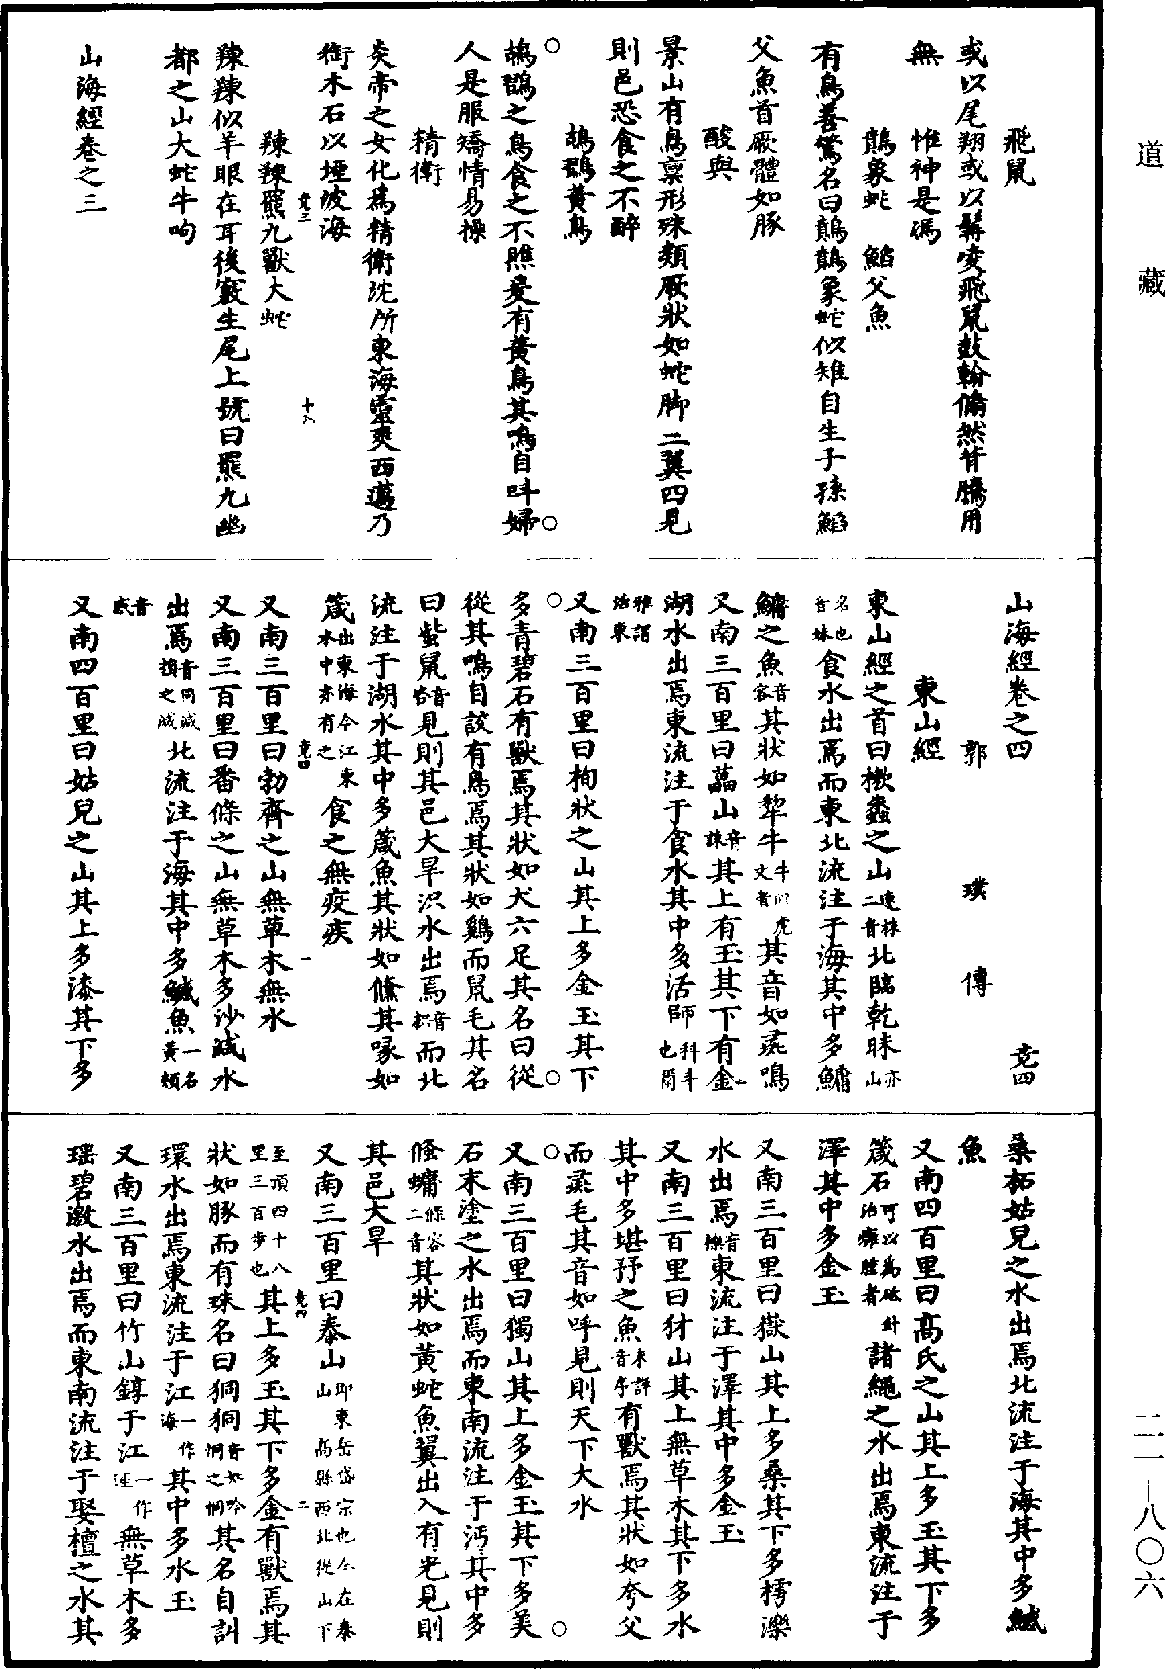 道藏
飛鼠
或以尾翔或以髯凌飛鼠鼓翰倏然背騰用
無惟神是馮
鷾象蛇 鮥父魚
有鳥善驚名曰鷾鷾象蛇似雉自生子孫鮥
父魚首厥體如豚
酸與
景山有鳥稟形殊類厥狀如蛇脚二翼四見
則邑恐食之不醉
鴣鸐黃鳥
鴣鸐之鳥食之不瞧爰有黃鳥其鳴自叫婦
人是服矯情易操
精衛
炎帝之女化爲精衛沈所東海靈爽西邁乃
銜木石以堙波海
竞三 十八
䍶䍶羆九獸大蛇
䍶䍶似羊眼在耳後竅生尾上號曰羆九幽
都之山大蛇牛呴
山海經卷之三
山海經卷之四 竞四
郭璞傳
東山經
東山經之首曰樕䖝之山速株二音北臨乾昧亦山
名也音妹食水出焉而東北流注于海其中多鱅
鱅之魚音容其狀如犂牛牛似虎文者其音如彘鳴
又南三百里曰藟山音誄其上有玉其下有金
湖水出焉東流注于食水其中多活師科斗也爾
雅謂活東
又南三百里曰枸狀之山其上多金玉其下
多青碧石有獸焉其狀如犬六足其名曰從
從其鳴自詨有鳥焉其狀如鷄而鼠毛其名
曰𪕗鼠音咨見則其邑大旱沢水出焉音枳而北
流注于湖水其中多箴魚其狀如儵其喙如
箴出東海今江東水中亦有之食之無疫疾
竞四 一
又南三百里曰勃齊之山無草木無水
又南三百里曰番條之山無草木多沙減水
出焉音同減損之減北流注于海其中多鱤魚一名黃頰
音感
又南四百里曰姑兒之山其上多漆其下多
桑柘姑兒之水出焉北流注于海其中多鱤
魚
又南四百里曰高氏之山其上多玉其下多
箴石可以爲砭針治癰腫者諸繩之水出焉東流注于
澤其中多金玉
又南三百里曰嶽山其上多桑其下多樗濼
水出焉音櫟東流注于澤其中多金玉
又南三百里曰犲山其上無草木其下多水
其中多堪㐨之魚未詳音序有獸焉其狀如夸父
而彘毛其音如呼見則天下大水
又南三百里曰獨山其上多金玉其下多美
石末塗之水出焉而東南流注于沔其中多
偹䗤條容二音其狀如黃蛇魚翼出入有光見則
其邑大旱
又南三百里曰泰山即東岳岱宗也今在泰山高縣西北從山下
至頂四十八里三百步也其上多玉其下多金有獸焉其
竞四 二
狀如豚而有珠名曰狪狪音如吟恫之恫其名自訆
環水出焉東流注于江一作海其中多水玉
又南三百里曰竹山錞于江一作涯無草木多
瑶碧激水出焉而東南流注于娶檀之水其
二一—八〇六